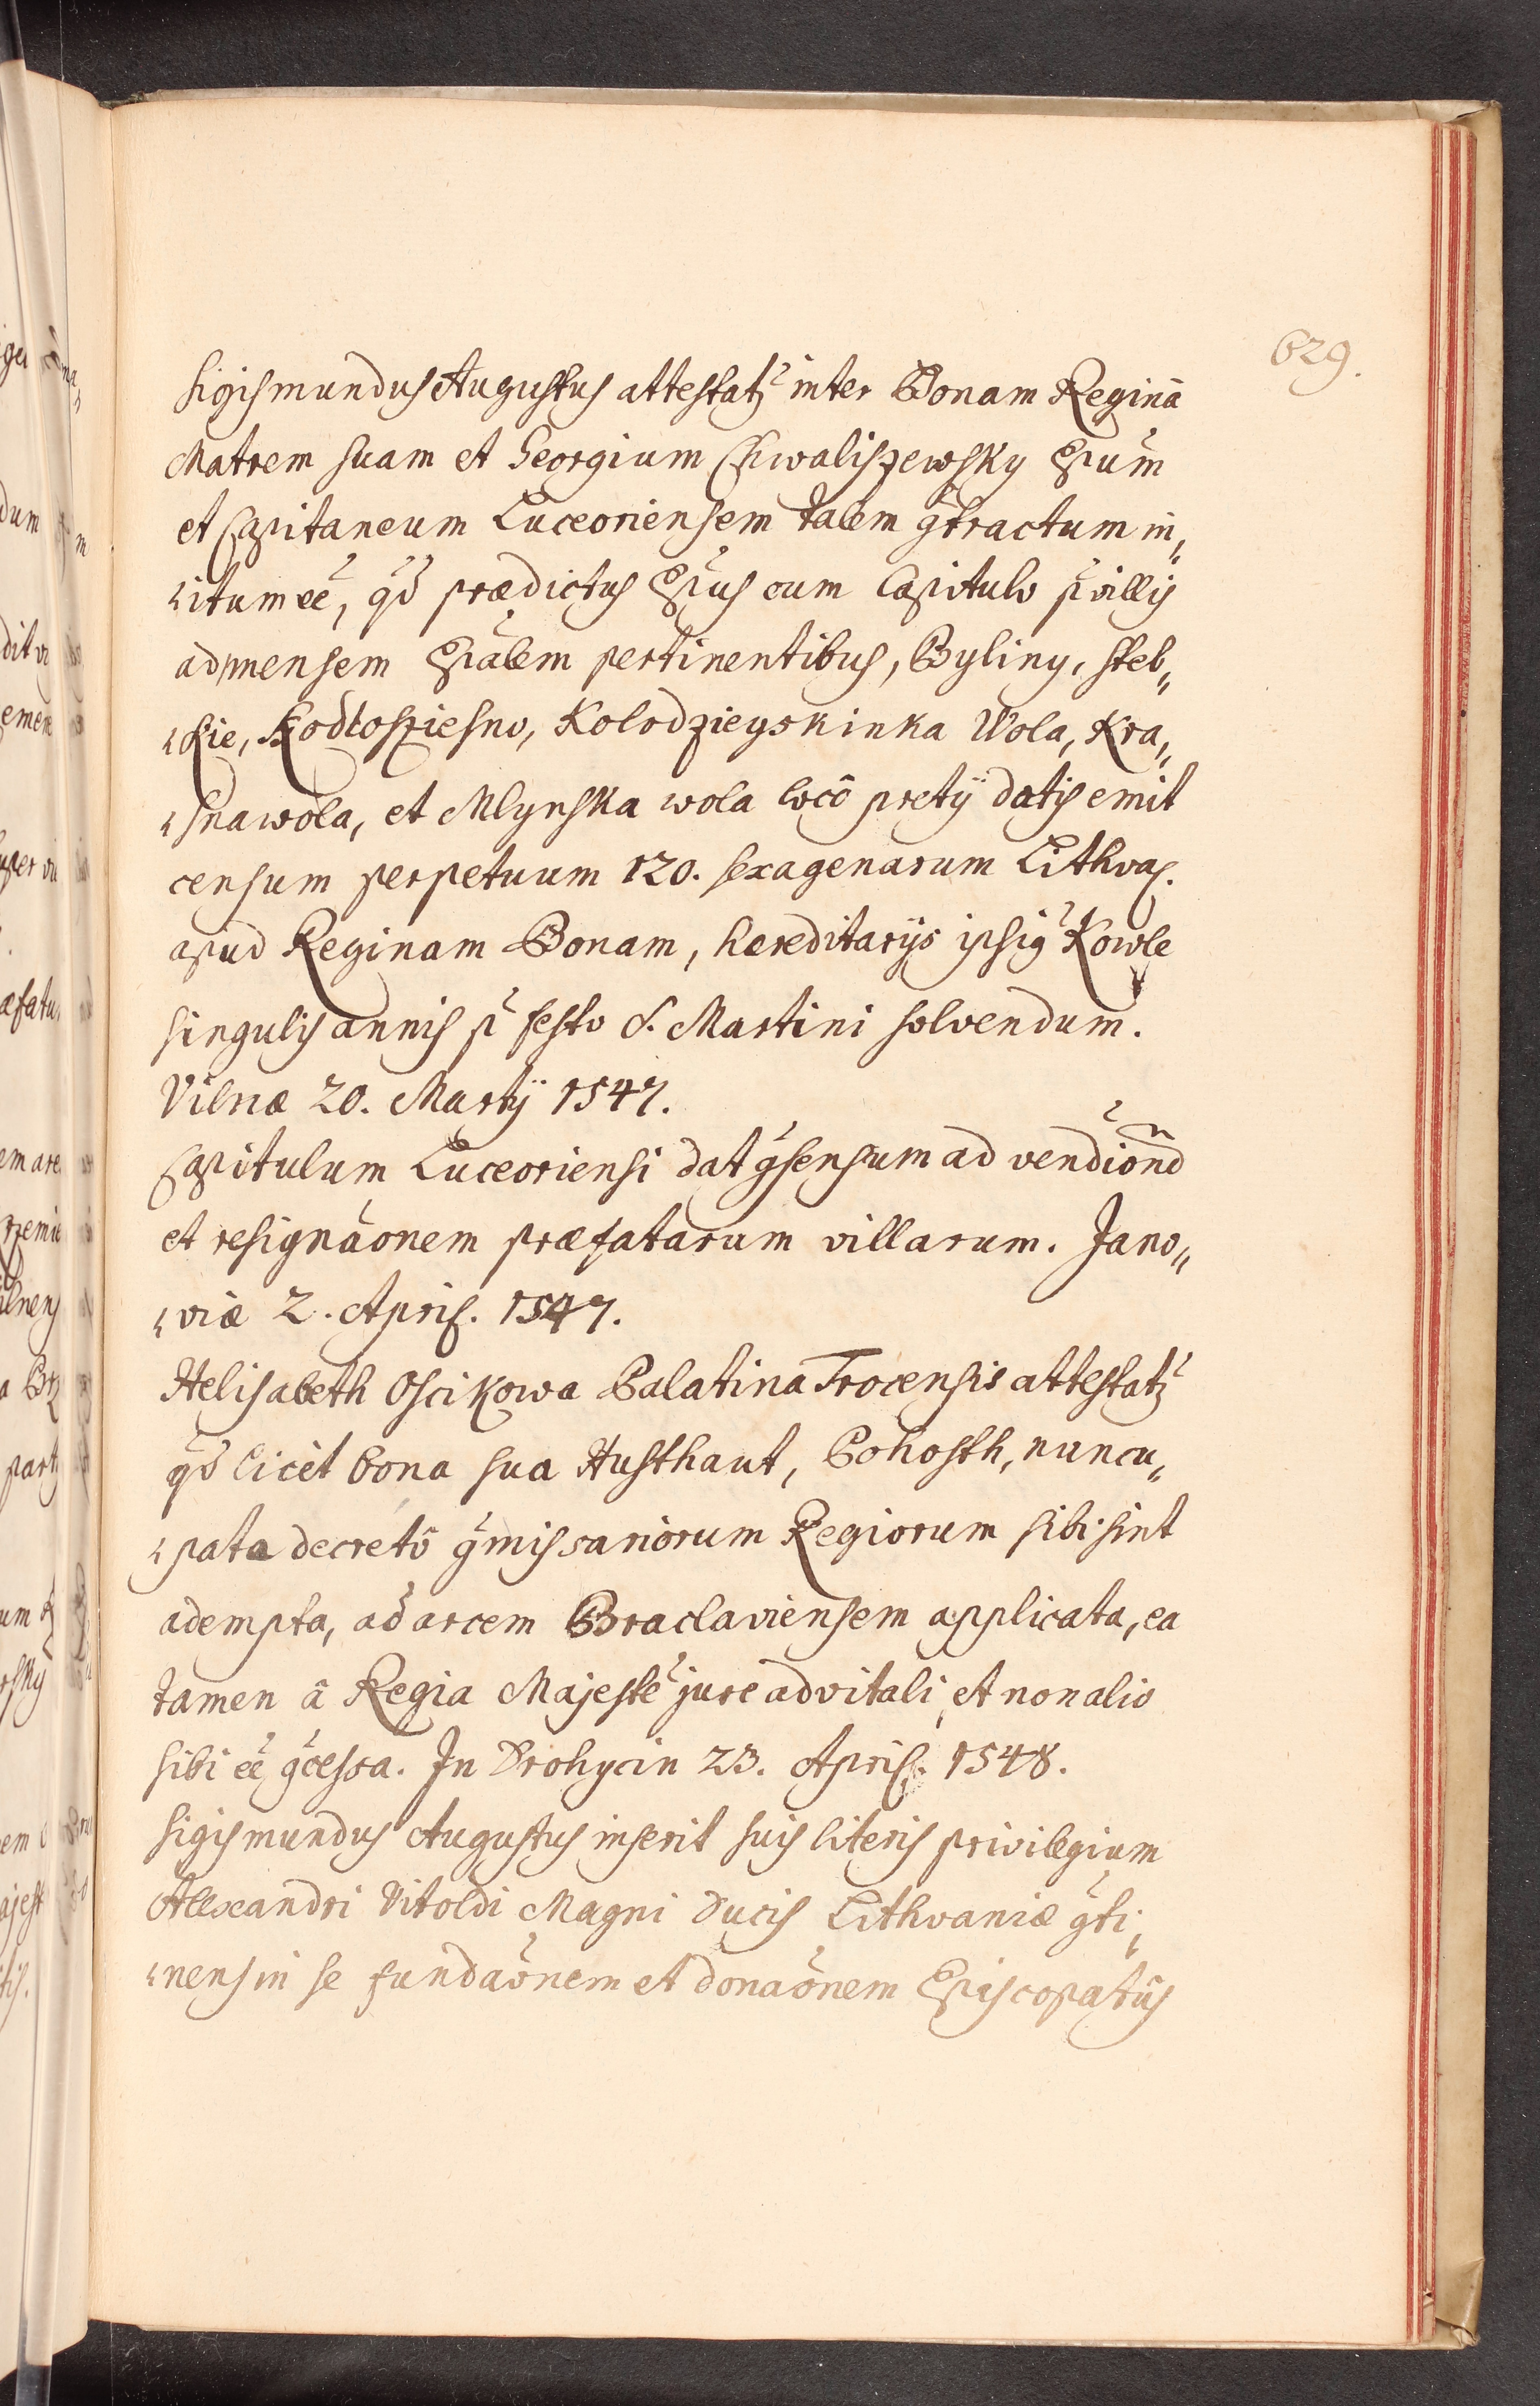 629.
Sigismundus Augustus attestatz inter Bonam Reginā
Matrem suam et Georgium Chwaliszewsky Epum
et Capitaneum Luceoriensem talem gtractum in„
„itum eē, qd prædictus Epus cum Capitulo p villis
ad mensem Epalem pertinentibus, Byliny, Steb„
„kie, Kolodzieyskinka Wola, Kra„
„snawola, et Mlynska wola locô pretÿ datis emit
censum perpetuum 120. sexagenarum Lithvas.
apud Reginam Bonam, hereditarÿs ipsig Kowle
singulis annis p festo S. Martini solvendum.
Vilnæ 20. Martÿ 1547.
Capitulum Luceoriensi dat gsensum ad vendiond
et resignaonem præfatarum villarum. Jano„
„viæ 2. April. 1547.
Helisabeth Oscikowa Palatina Trocensis attestatz
qd licèt bona sua Husthaut, Pohosth, nuncu„
„pata decretô gmissariorum Regiorum sibi sint
adempta, ad arcem Braclaviensem applicata, ea
tamen â Regia Majeste jure advitali, et non alio
sibi eē gcessa. In Drohycin 23. April. 1548.
Sigismundus Augustus inserit suis literis privilegium
Allexandri Vitoldi Magni Ducis Lithvaniæ gti„
„nens in se fundaonem et donaonem Episcopatûs